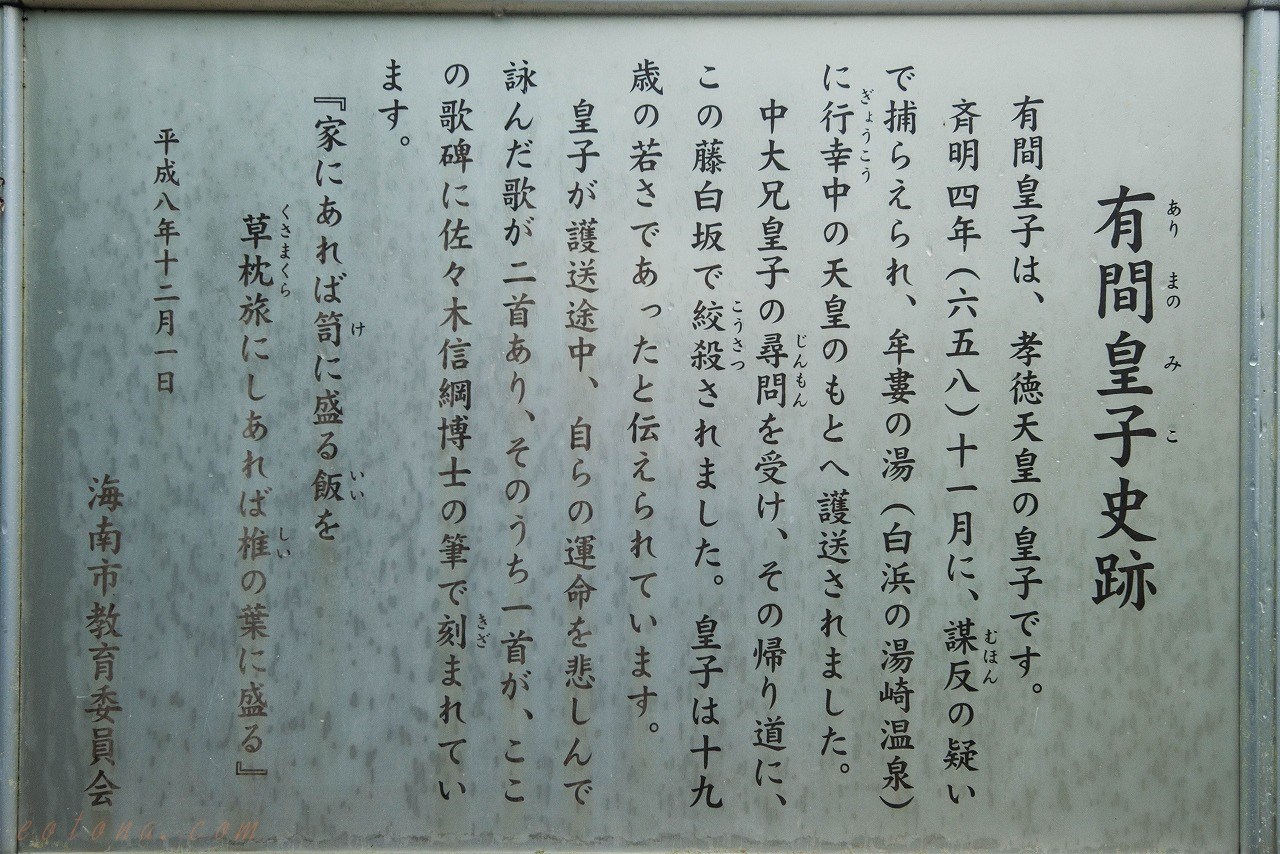 有間皇子史跡
有間皇子は、孝徳天皇の皇子です。
斉明四年（六五八）十一月に、謀反の疑い
で捕らえられ、牟婁の湯（白浜の湯崎温泉）
に行幸中の天皇のもとへ護送されました。
中大兄皇子の尋問を受け、その帰り道に、
この藤白坂で絞殺されました。皇子は十九
歳の若さであったと伝えられています。
皇子が護送途中、自らの運命を悲しんで
詠んだ歌が二首あり、そのうち一首が、ここ
の歌碑に佐々木信綱博士の筆で刻まれてい
ます。
『家にあれば笥に盛る飯を
草枕旅にしあれば椎の葉に盛る』
平成八年十二月一日
海南市教育委員会
ありまのみこ
むほん
ぎょうこう
じんもん
こうさつ
きざ
け
いい
くさまくら
しい
eotona.com